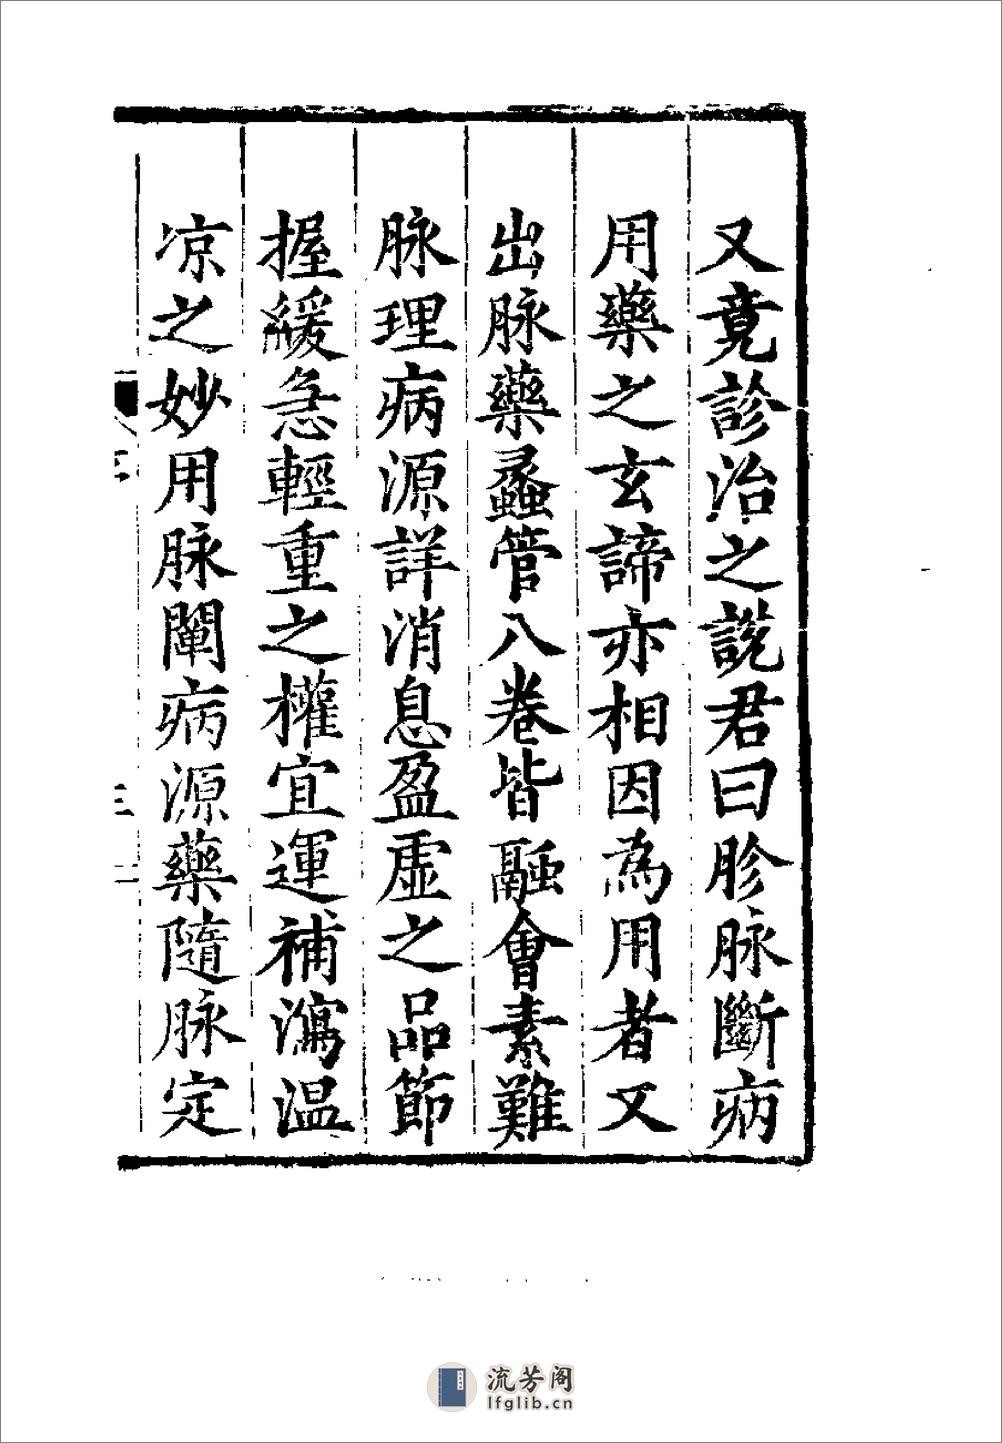 又竟診治之説君曰胗脉斷病
用藥之玄諦亦相因為用者又
出脉藥蠡管八卷皆融會素難
脉理病源詳消息盈虛之品節
握緩急輕重之權宜運補瀉温
凉之妙用脉闡病源藥隨脉定
三
流芳阁
lfglib.cn